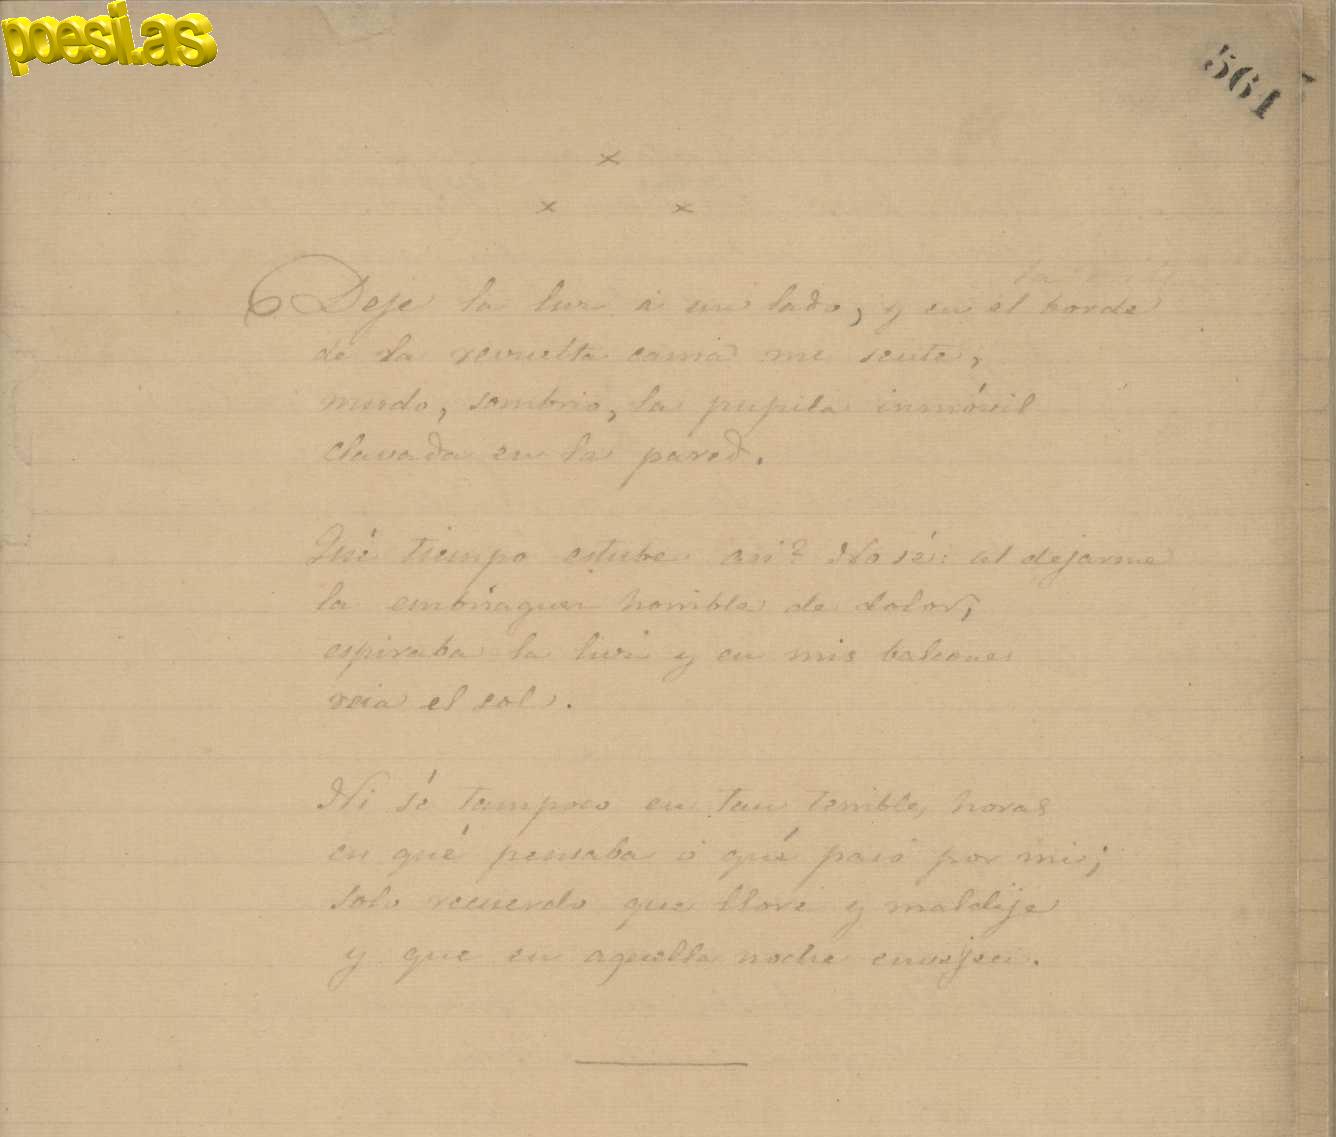 poesi.as
564
x
x x
Deje la luz á un lado, y en el borde
de la revuelta cama me sente,
mudo, sombrio, la pupila inmóvil
clavada en la pared.
Qué tiempo estube asi? No sé: al dejarme
la embriaguez horrible de dolor,
espiraba la luz y en mis balcones
reia el sol.
Ni sé tampoco en tan terribles horas
en qué pensaba ó qué pasó por mi;
solo recuerdo que lloré y maldije
y que en aquella noche envejeci.